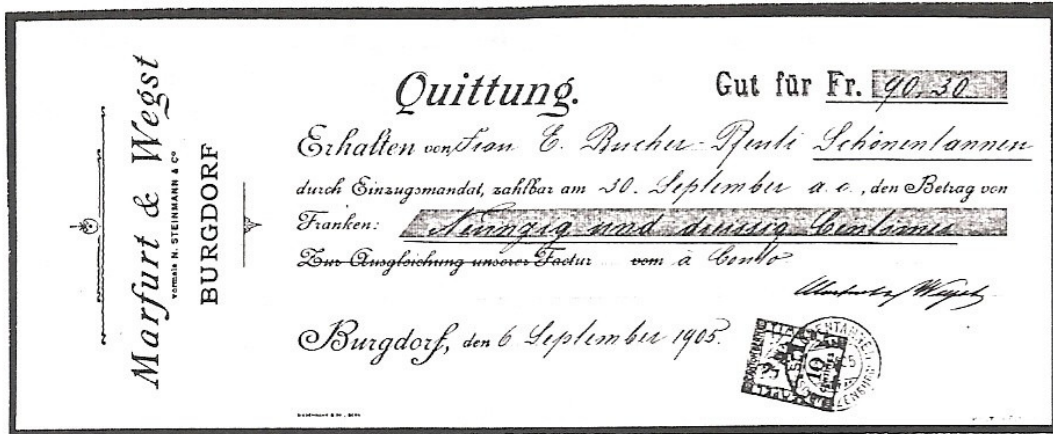 Marfurt & Wegst
vormals N. STEINMANN & Cº
BURGDORF
Quittung.
Gut für Fr. 90.30
Erhalten von Frau E. Bucher-Pfenti Schönentannen
durch Einzugsmandat, zahlbar am 30. September a. c., den Betrag von
Franken: Neunzig und dreissig Centimes
Zur Ausgleichung unserer Factur vom à Conto
Marfurt & Wegst
Burgdorf, den 6 September 1905.
10